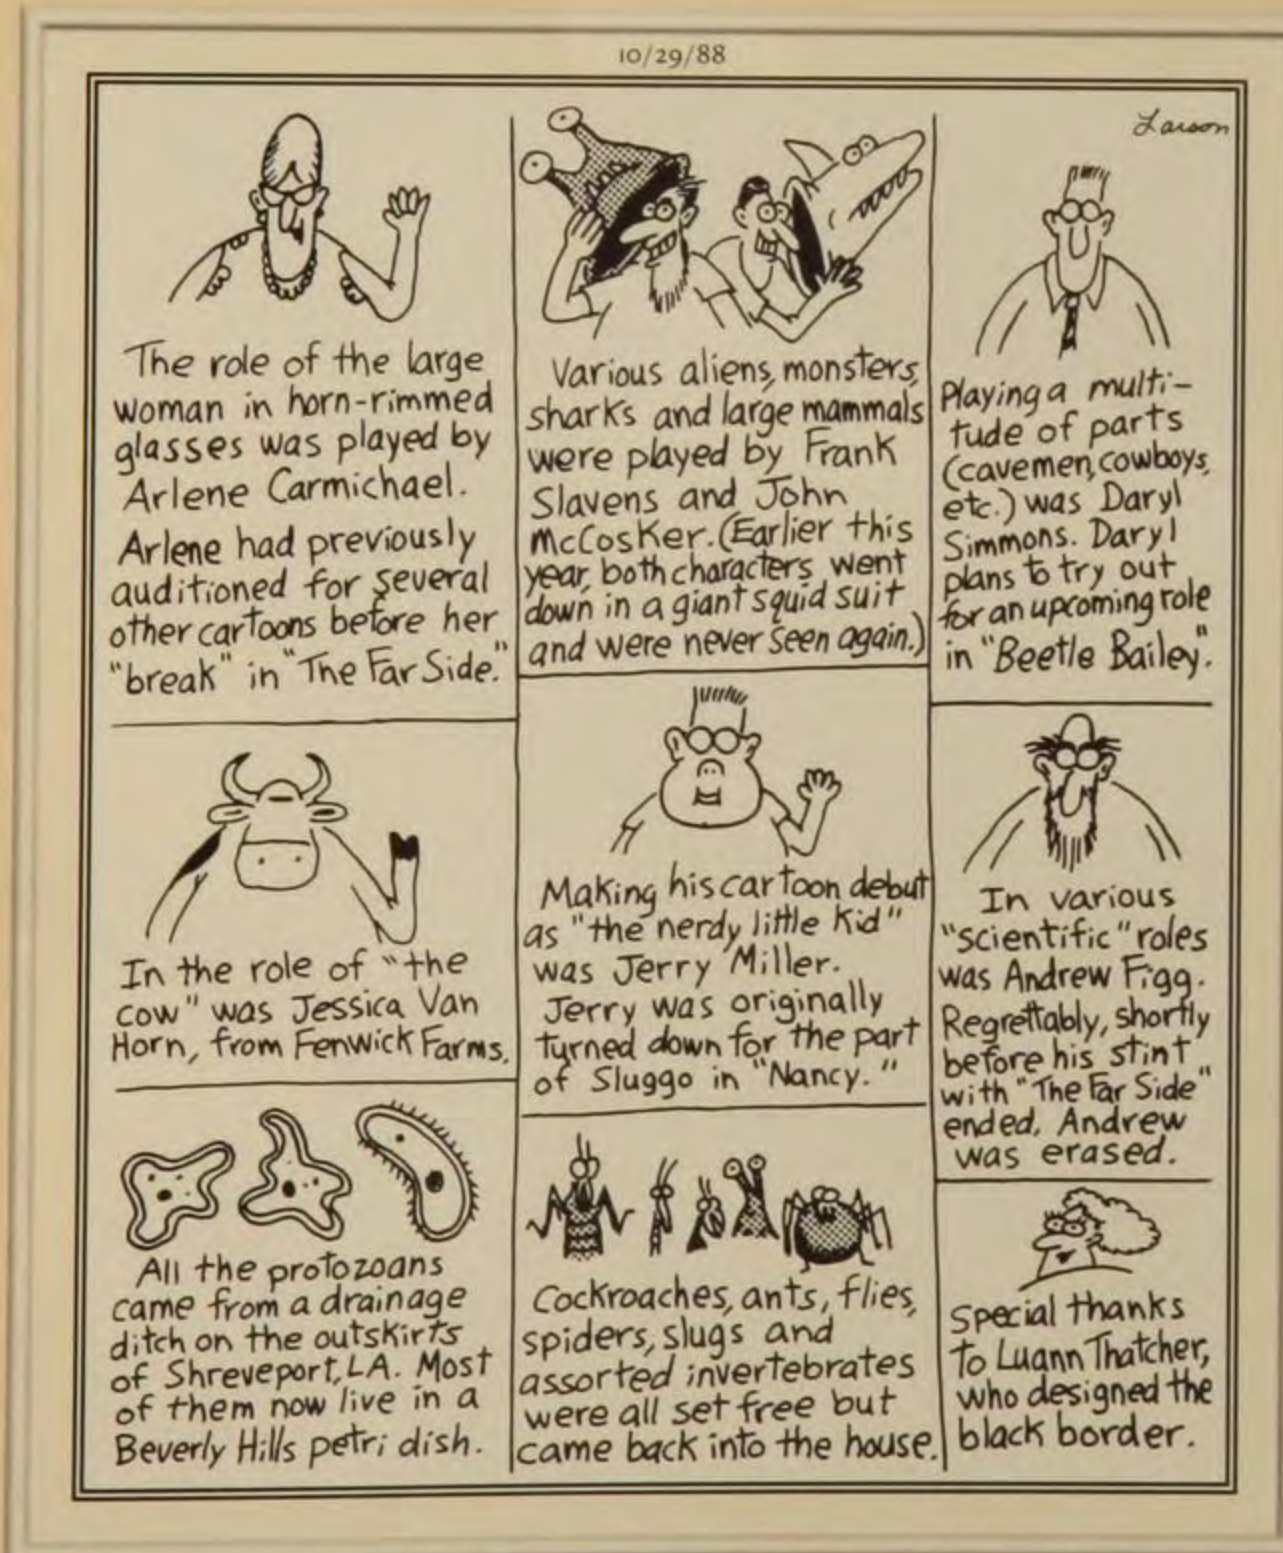 10/29/88
Larson
The role of the large
woman in horn-rimmed
glasses was played by
Arlene Carmichael.
Arlene had previously
auditioned for several
other cartoons before her
"break" in "The Far Side."
In the role of "the
cow" was Jessica Van
Horn, from Fenwick Farms.
All the protozoans
came from a drainage
ditch on the outskirts
of Shreveport, LA. Most
of them now live in a
Beverly Hills petri dish.
Various aliens, monsters,
sharks and large mammals
were played by Frank
Slavens and John
McCosker. (Earlier this
year, both characters went
down in a giant squid suit
and were never seen again.)
Making his cartoon debut
as "the nerdy little kid"
was Jerry Miller.
Jerry was originally
turned down for the part
of Sluggo in "Nancy."
Cockroaches, ants, flies,
spiders, slugs and
assorted invertebrates
were all set free but
came back into the house.
Playing a multi-
tude of parts
(cavemen, cowboys,
etc.) was Daryl
Simmons. Daryl
plans to try out
for an upcoming role
in "Beetle Bailey".
In various
"scientific" roles
was Andrew Figg.
Regrettably, shortly
before his stint
with "The Far Side"
ended, Andrew
was erased.
Special thanks
to Luann Thatcher,
who designed the
black border.